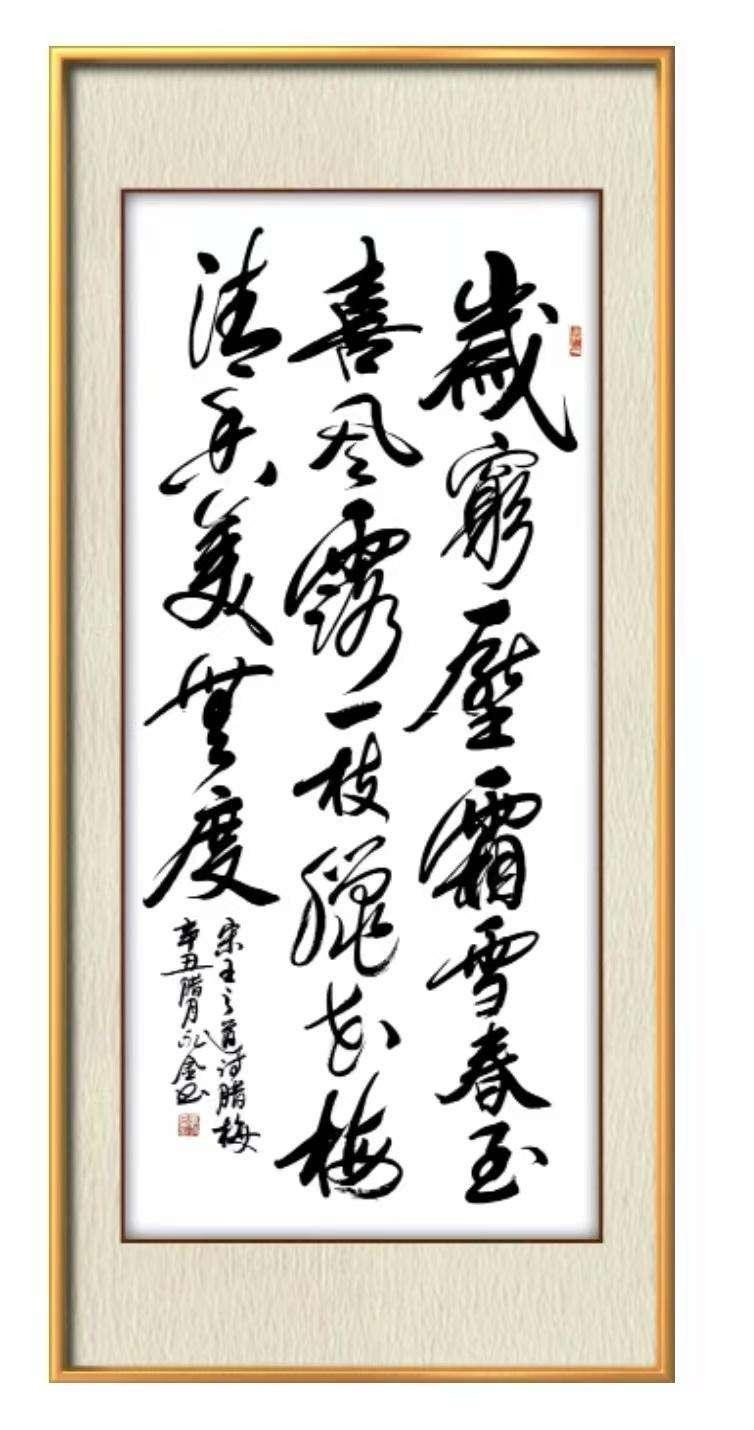 歲窮壓霜雪春至
喜風露一枝臘花梅
清香美無度
宋王之道詩腊梅
辛丑腊月永金书